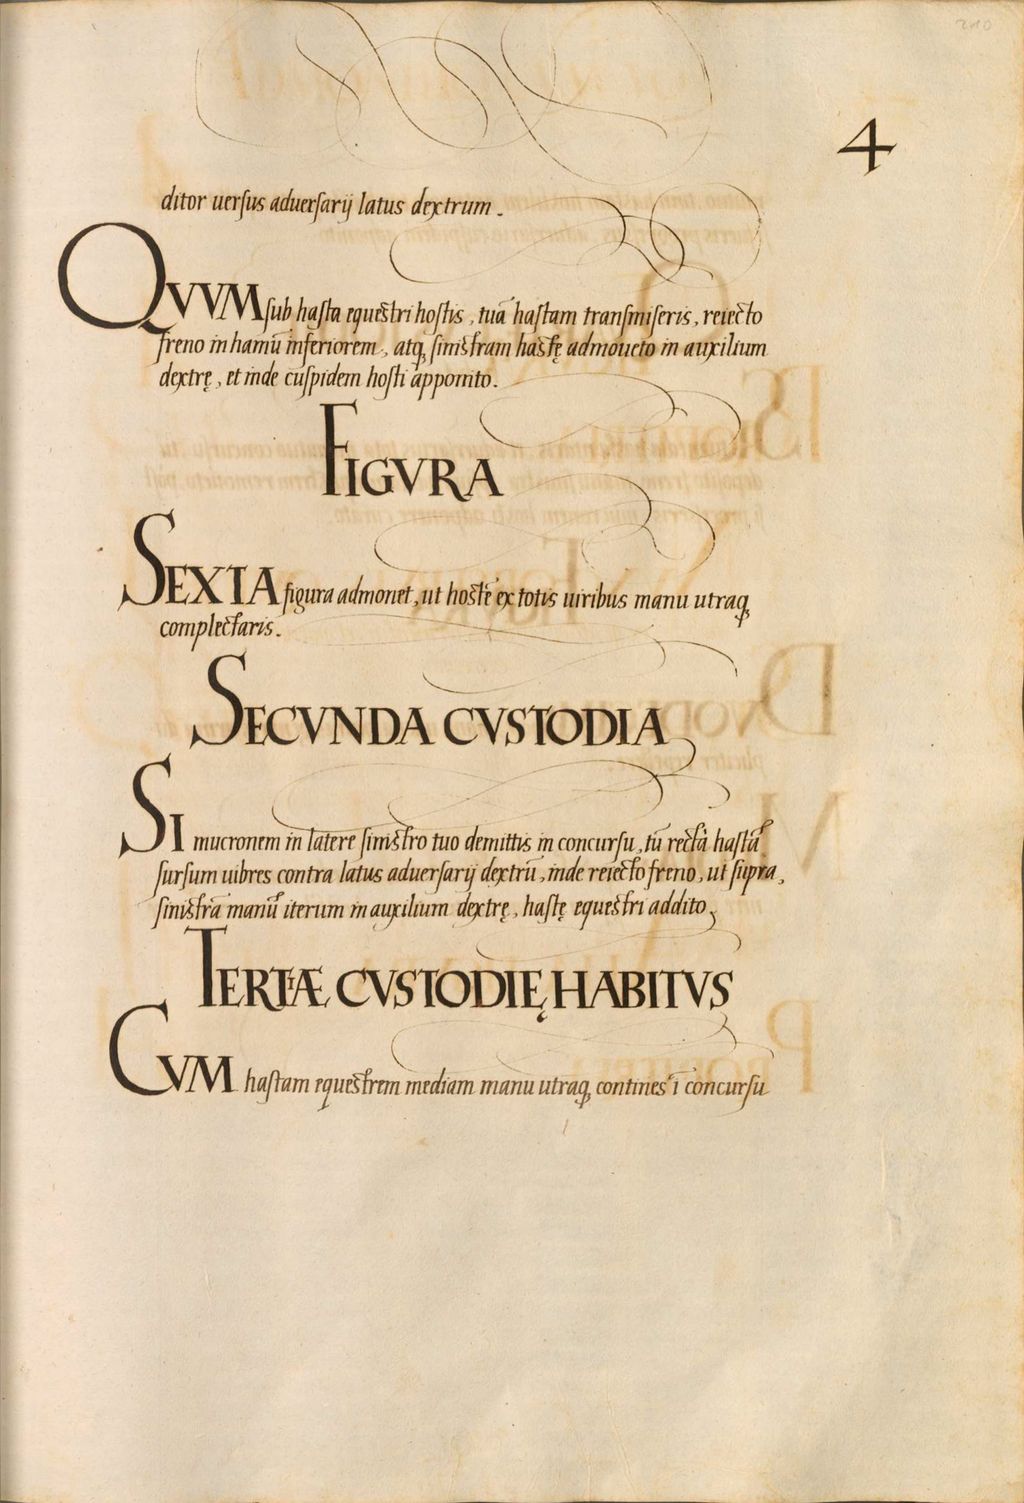 4
ditor uersus aduersarij latus dextrum.
QVVM sub hasta equestri hostis, tuā hastam transmiseris, reiecto
freno in hamū inferiorem, atq̨ sinistram hastę admoueto in auxilium
dextrę, et inde cuspidem hosti apponito.
FIGVRA
SEXTA figura admonet, ut hostē ex totis uiribus manu utraq̨
complectaris.
SECVNDA CVSTODIA
SI mucronem in latere sinistro tuo demittis in concursu, tū rectā hastā
sursum uibres contra latus aduersarij dextrū, inde reiecto freno, ut supra,
sinistrā manū iterum in auxilium dextrę, hastę equestri addito,
TERTIÆ CVSTODIĘ HABITVS
CVM hastam equestrem mediam manu utraq̨ contines ī concursu